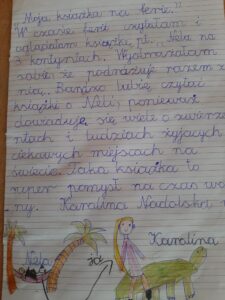 "Moja książka na ferie."
W czasie ferii czytałam i
oglądałam książkę pt. "Nela na
3 kontynentach. Wyobrażałam
sobie że podróżuję razem z
nią. Bardzo lubię czytać
książki o Neli, ponieważ
dowiaduję się wiele o zwierzę-
tach i ludziach żyjących
ciekawych miejscach na
świecie. Taka książka to
super pomysł na czas wo
ny. Karolina Nadolska
Karolina
Nela
ja